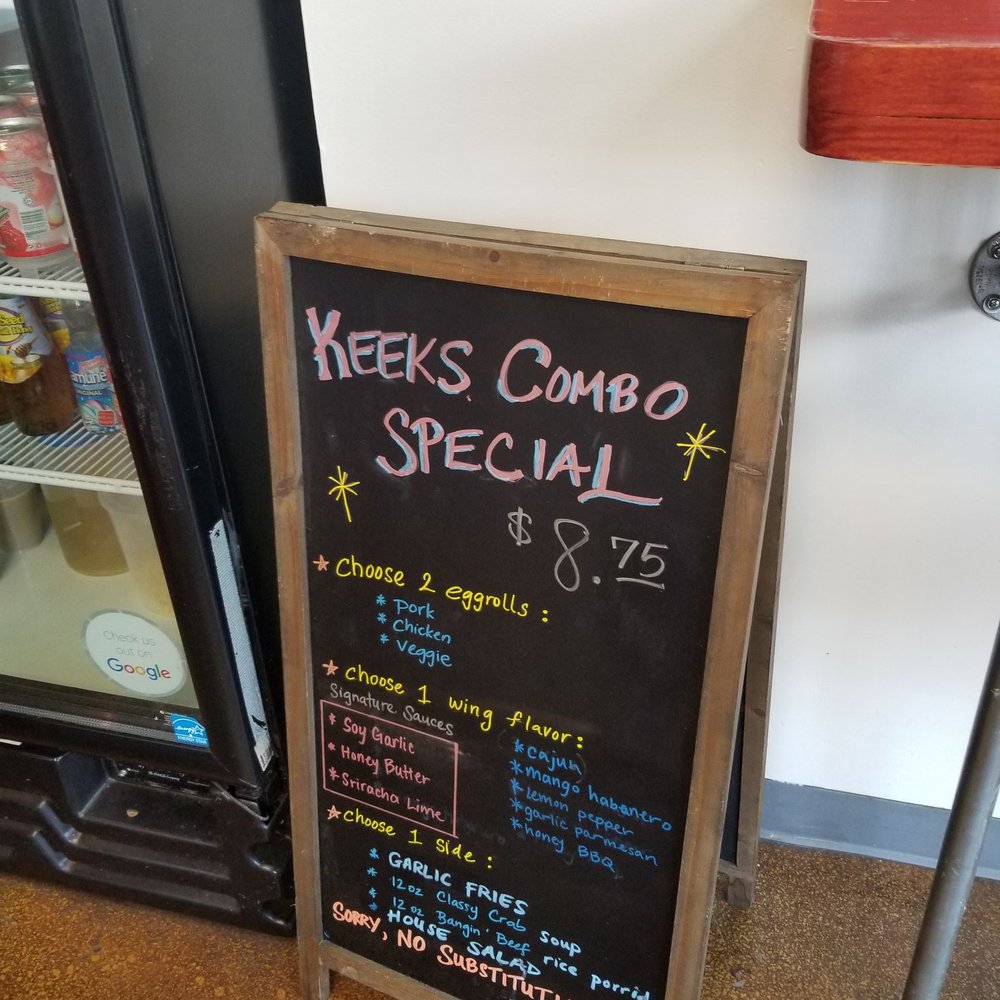 KEEKS COMBO
SPECIAL
$8.75
Choose 2 eggrolls:
* Pork
* Chicken
* Veggie
choose 1 wing flavor:
Signature Sauces
* Soy Garlic
* Honey Butter
* Sriracha Lime
* Cajun
* mango habanero
* lemon pepper
* garlic parmesan
* honey BBQ
choose 1 side:
* GARLIC FRIES
* 12 oz Classy Crab Soup
* 12 oz Bangin' Beef rice porrid
* HOUSE SALAD
SORRY, NO SUBSTITUTI
Check us
out on
Google
Seed
amuné
ORIGINAL
ENERGY STAR